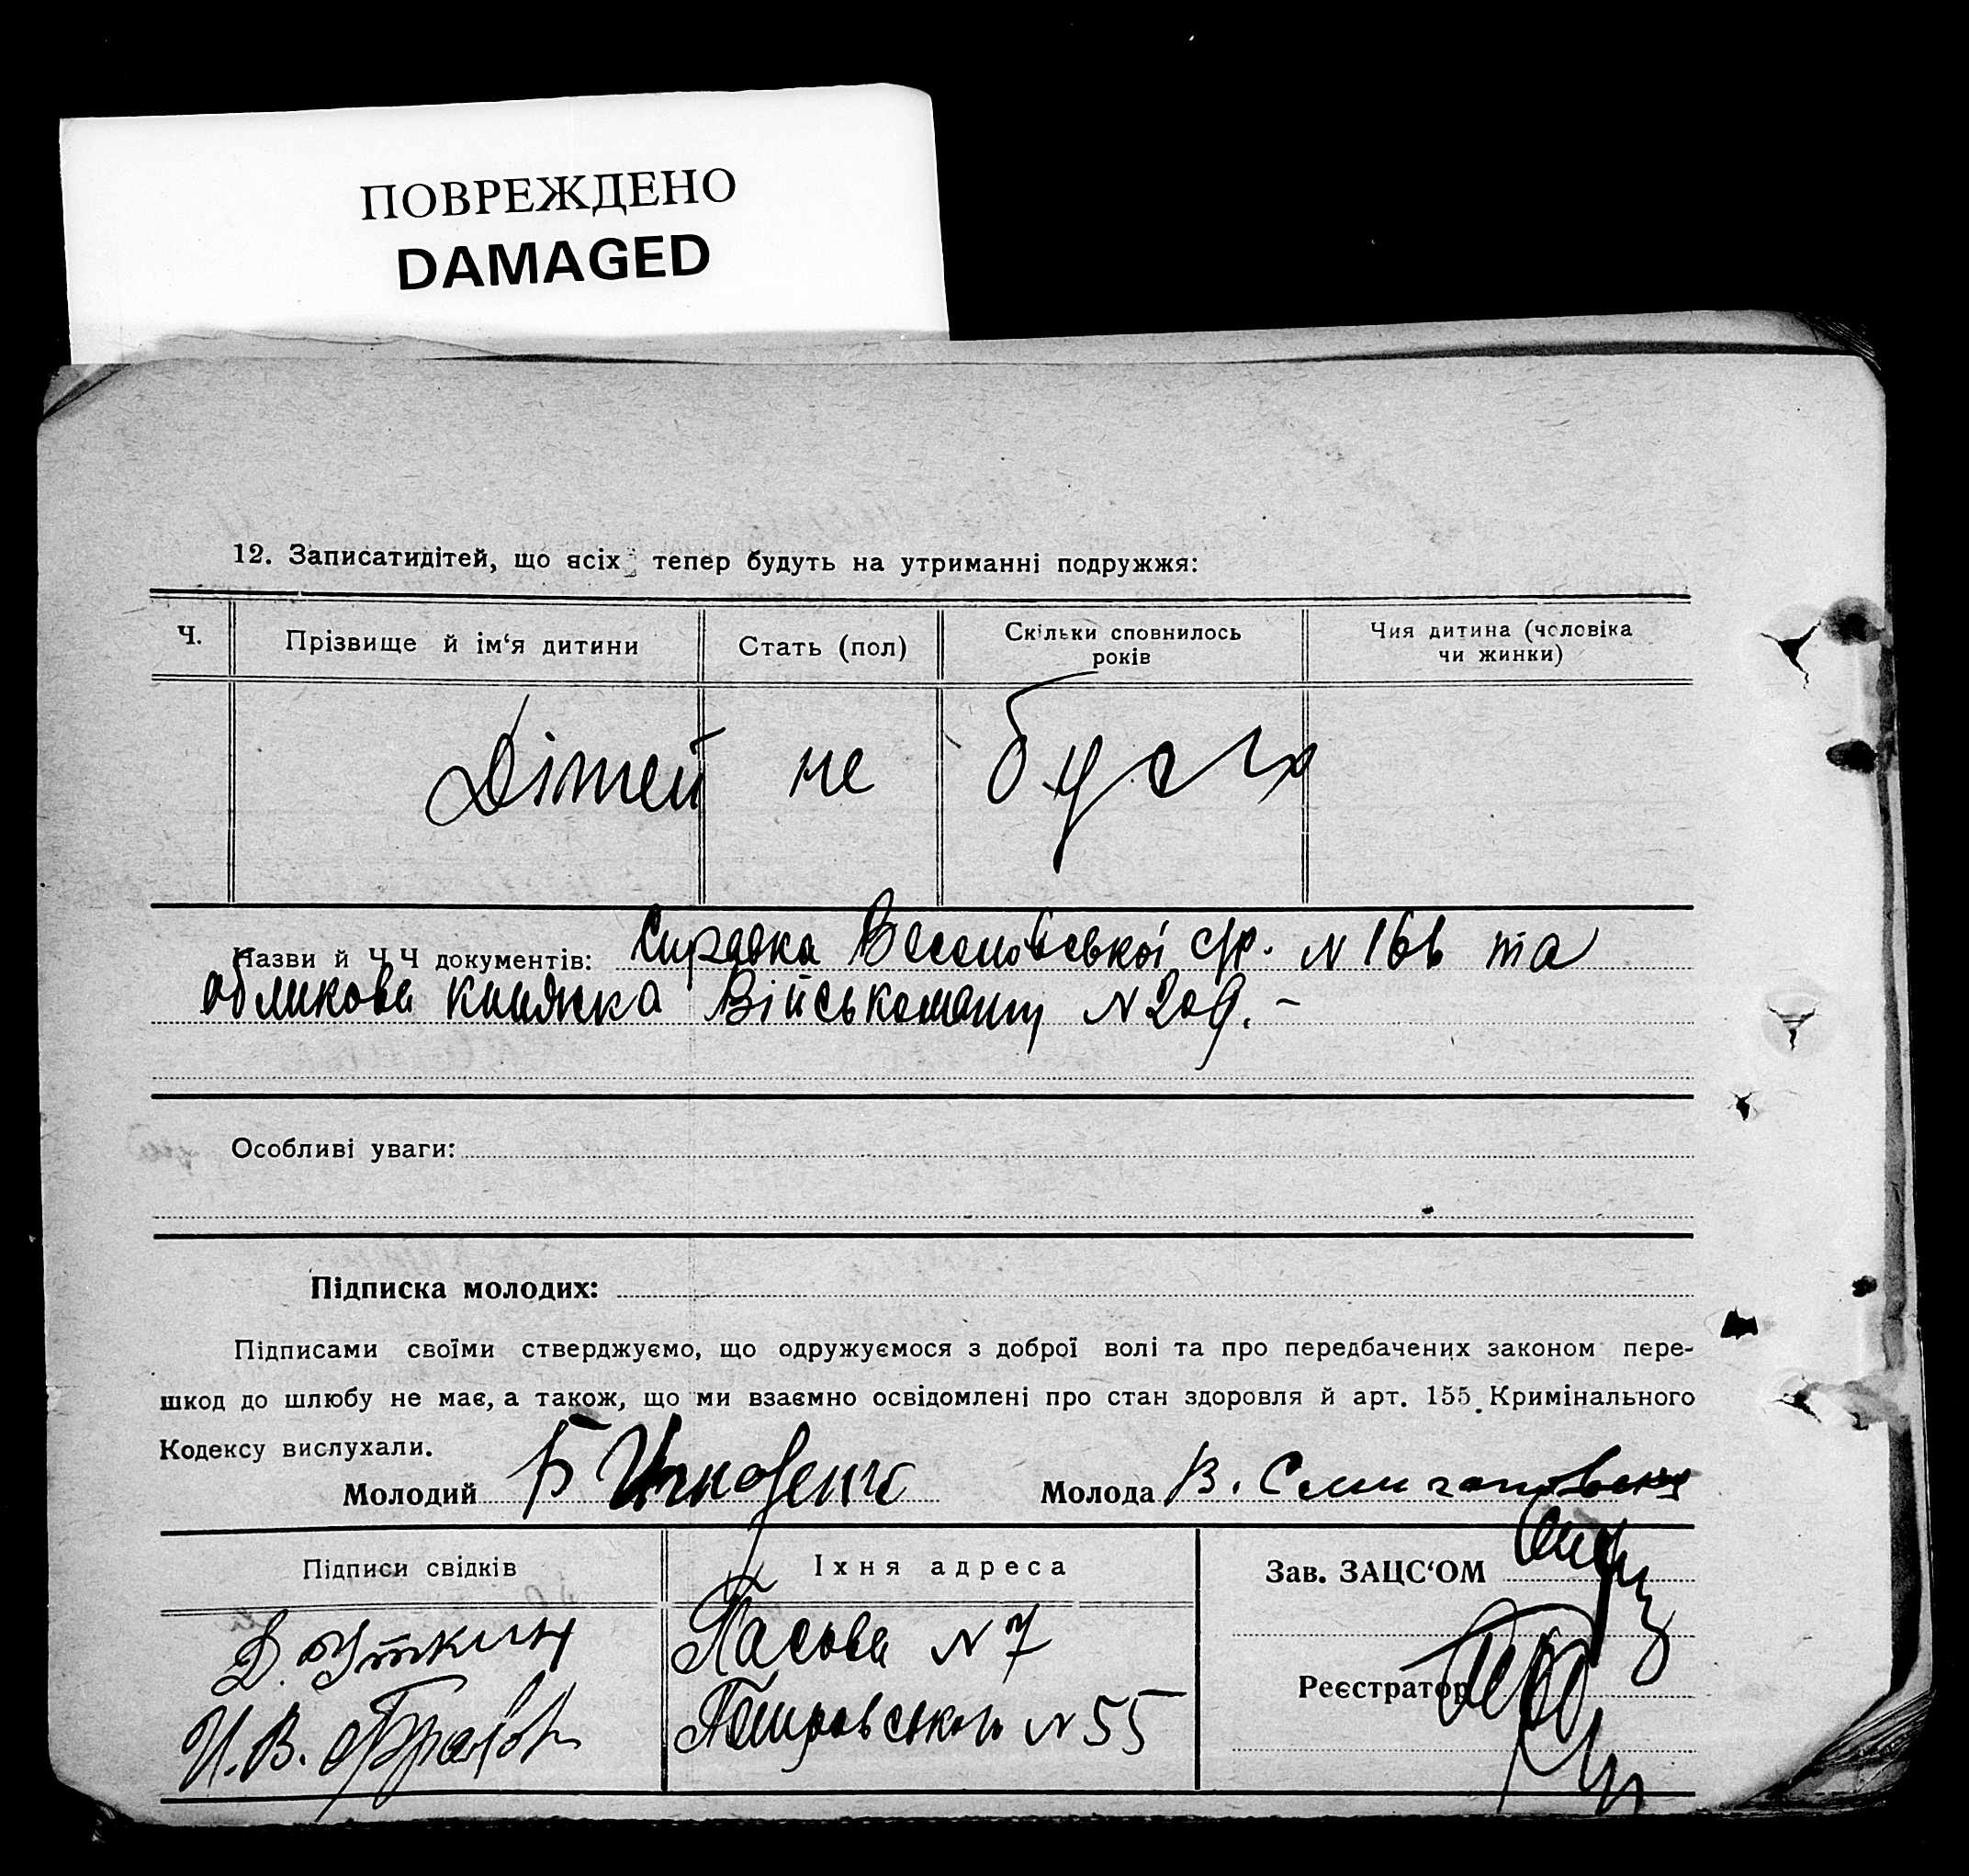 ПОВРЕЖДЕНО
DAMAGED
12. Записатидітей, що всіх тепер будуть на утриманні подружжя:
Ч. Прізвище й ім‘я дитини Стать (пол) Скільки сповнилось років Чия дитина (чоловіка чи жинки)
Дітей не було
Назви й Ч Ч документів: Справка с/р. N 166 та
обликова книжка Військомату N 209. –
Особливі уваги:
Підписка молодих:
Підписами своїми стверджуємо, що одружуємося з доброї волі та про передбачених законом пере-
шкод до шлюбу не має, а також, що ми взаємно освідомлені про стан здоровля й арт. 155 Кримінального
Кодексу вислухали.
Молодий Б Молода В.
Підписи свідків Їхня адреса Зав. ЗАЦС‘ОМ
Д. Уткин N 7
Реєстратор
И. В. N 55